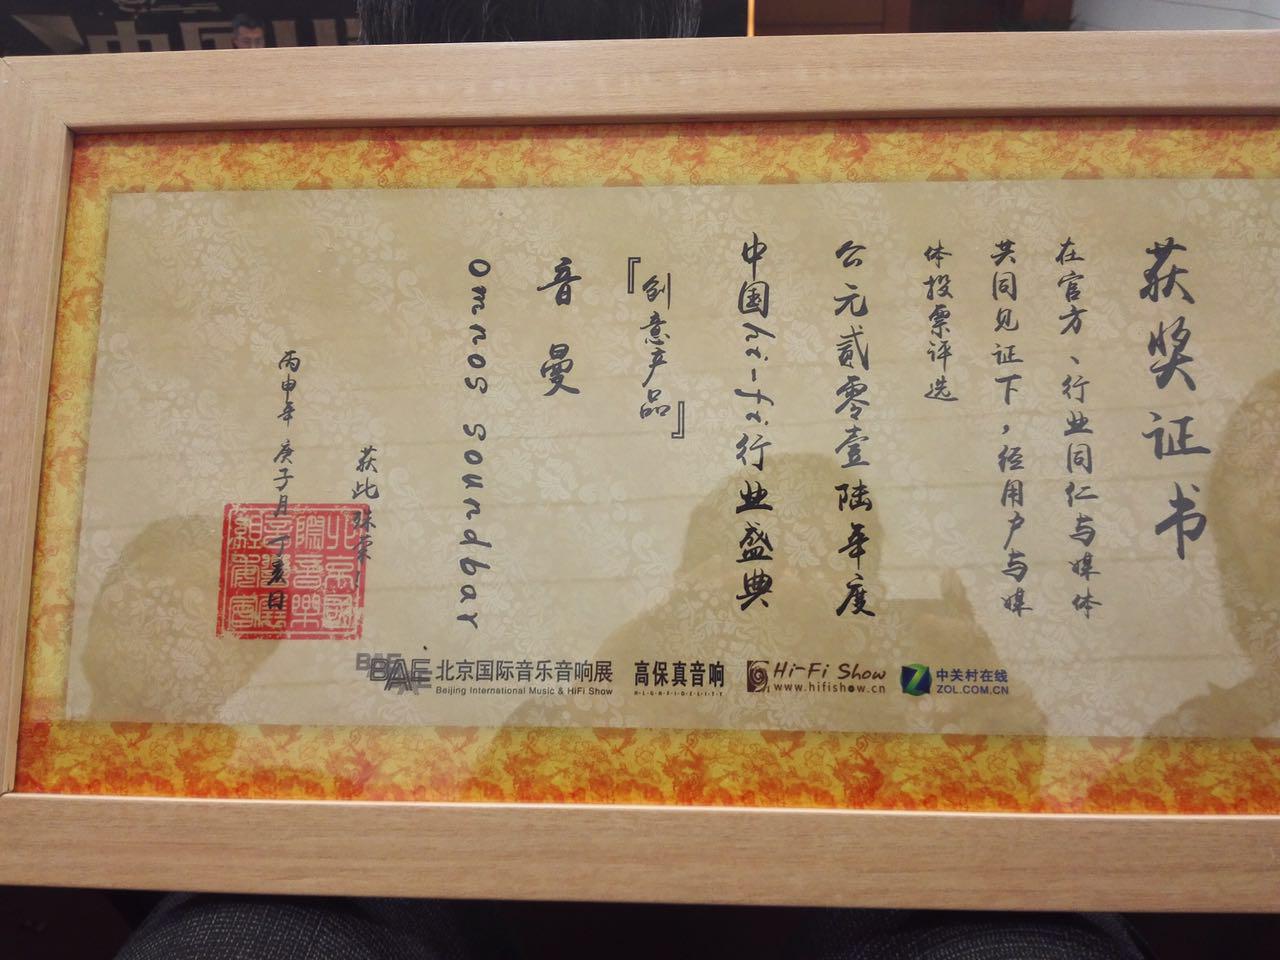 获奖证书
在官方、行业同仁与媒体
共同见证下，经用户与媒
体投票评选
公元贰零壹陆年度
中国hi-fi行业盛典
『创意产品』
音曼
Omnos Soundbar
获此殊荣！
丙申年 庚子月 丁亥日
BAE 北京国际音乐音响展
Beijing International Music & HiFi Show
高保真音响
H·I·G·H·F·I·D·E·L·I·T·Y
Hi-Fi Show
www.hifishow.cn
中关村在线
ZOL.COM.CN